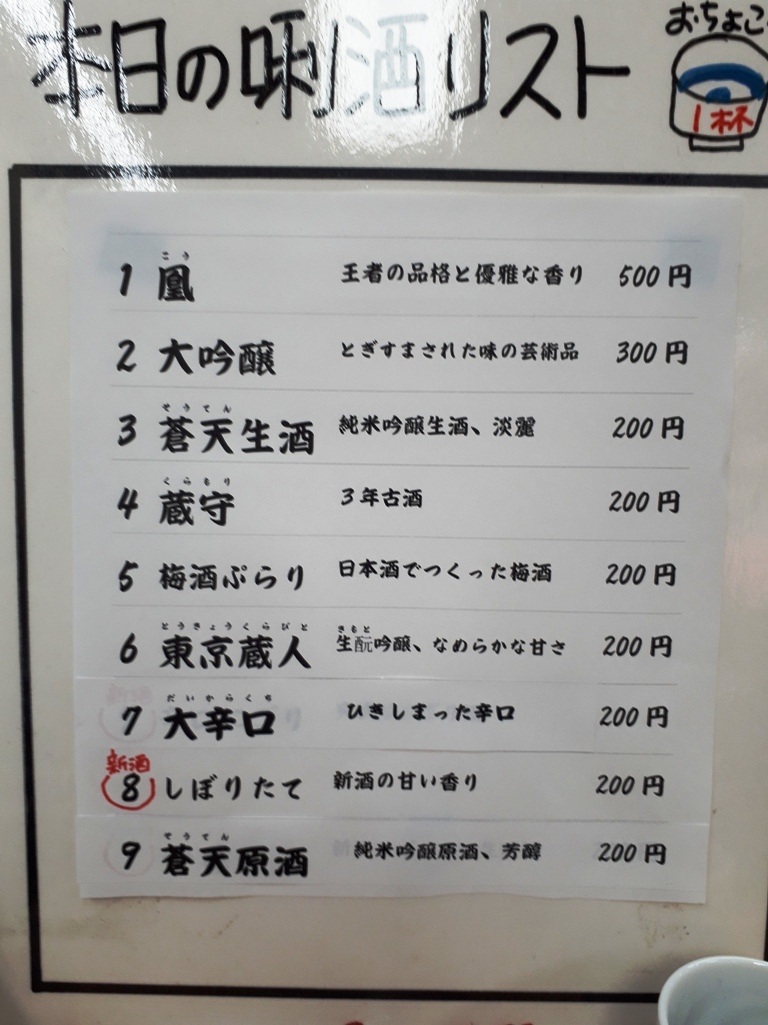 本日の唎酒リスト
おちょこ
1杯
こう
1 凰 王者の品格と優雅な香り 500円
2 大吟醸 とぎすまされた味の芸術品 300円
そうてん
3 蒼天生酒 純米吟醸生酒、淡麗 200円
くらもり
4 蔵守 3年古酒 200円
5 梅酒ぷらり 日本酒でつくった梅酒 200円
とうきょうくらびと きもと
6 東京蔵人 生酛吟醸、なめらかな甘さ 200円
だいからくち
7 大辛口 ひきしまった辛口 200円
新酒
8 しぼりたて 新酒の甘い香り 200円
そうてん
9 蒼天原酒 純米吟醸原酒、芳醇 200円